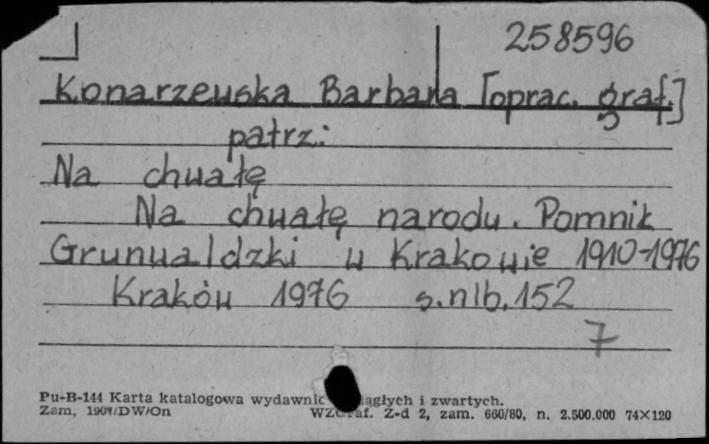 258596
Konarzewska Barbara [oprac. graf.]
patrz:
Na chwałę
Na chwałę narodu. Pomnik
Grunwaldzki w Krakowie 1910-1976
Kraków 1976 s.nlb.152
7
Pu-B-144 Karta katalogowa wydawnic ągłych i zwartych.
Zam. /DW/On WZGraf. Z-d 2, zam. 660/80, n. 2.500.000 74×120